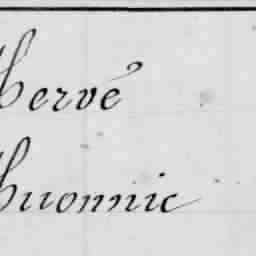 Hervé
Huonnic